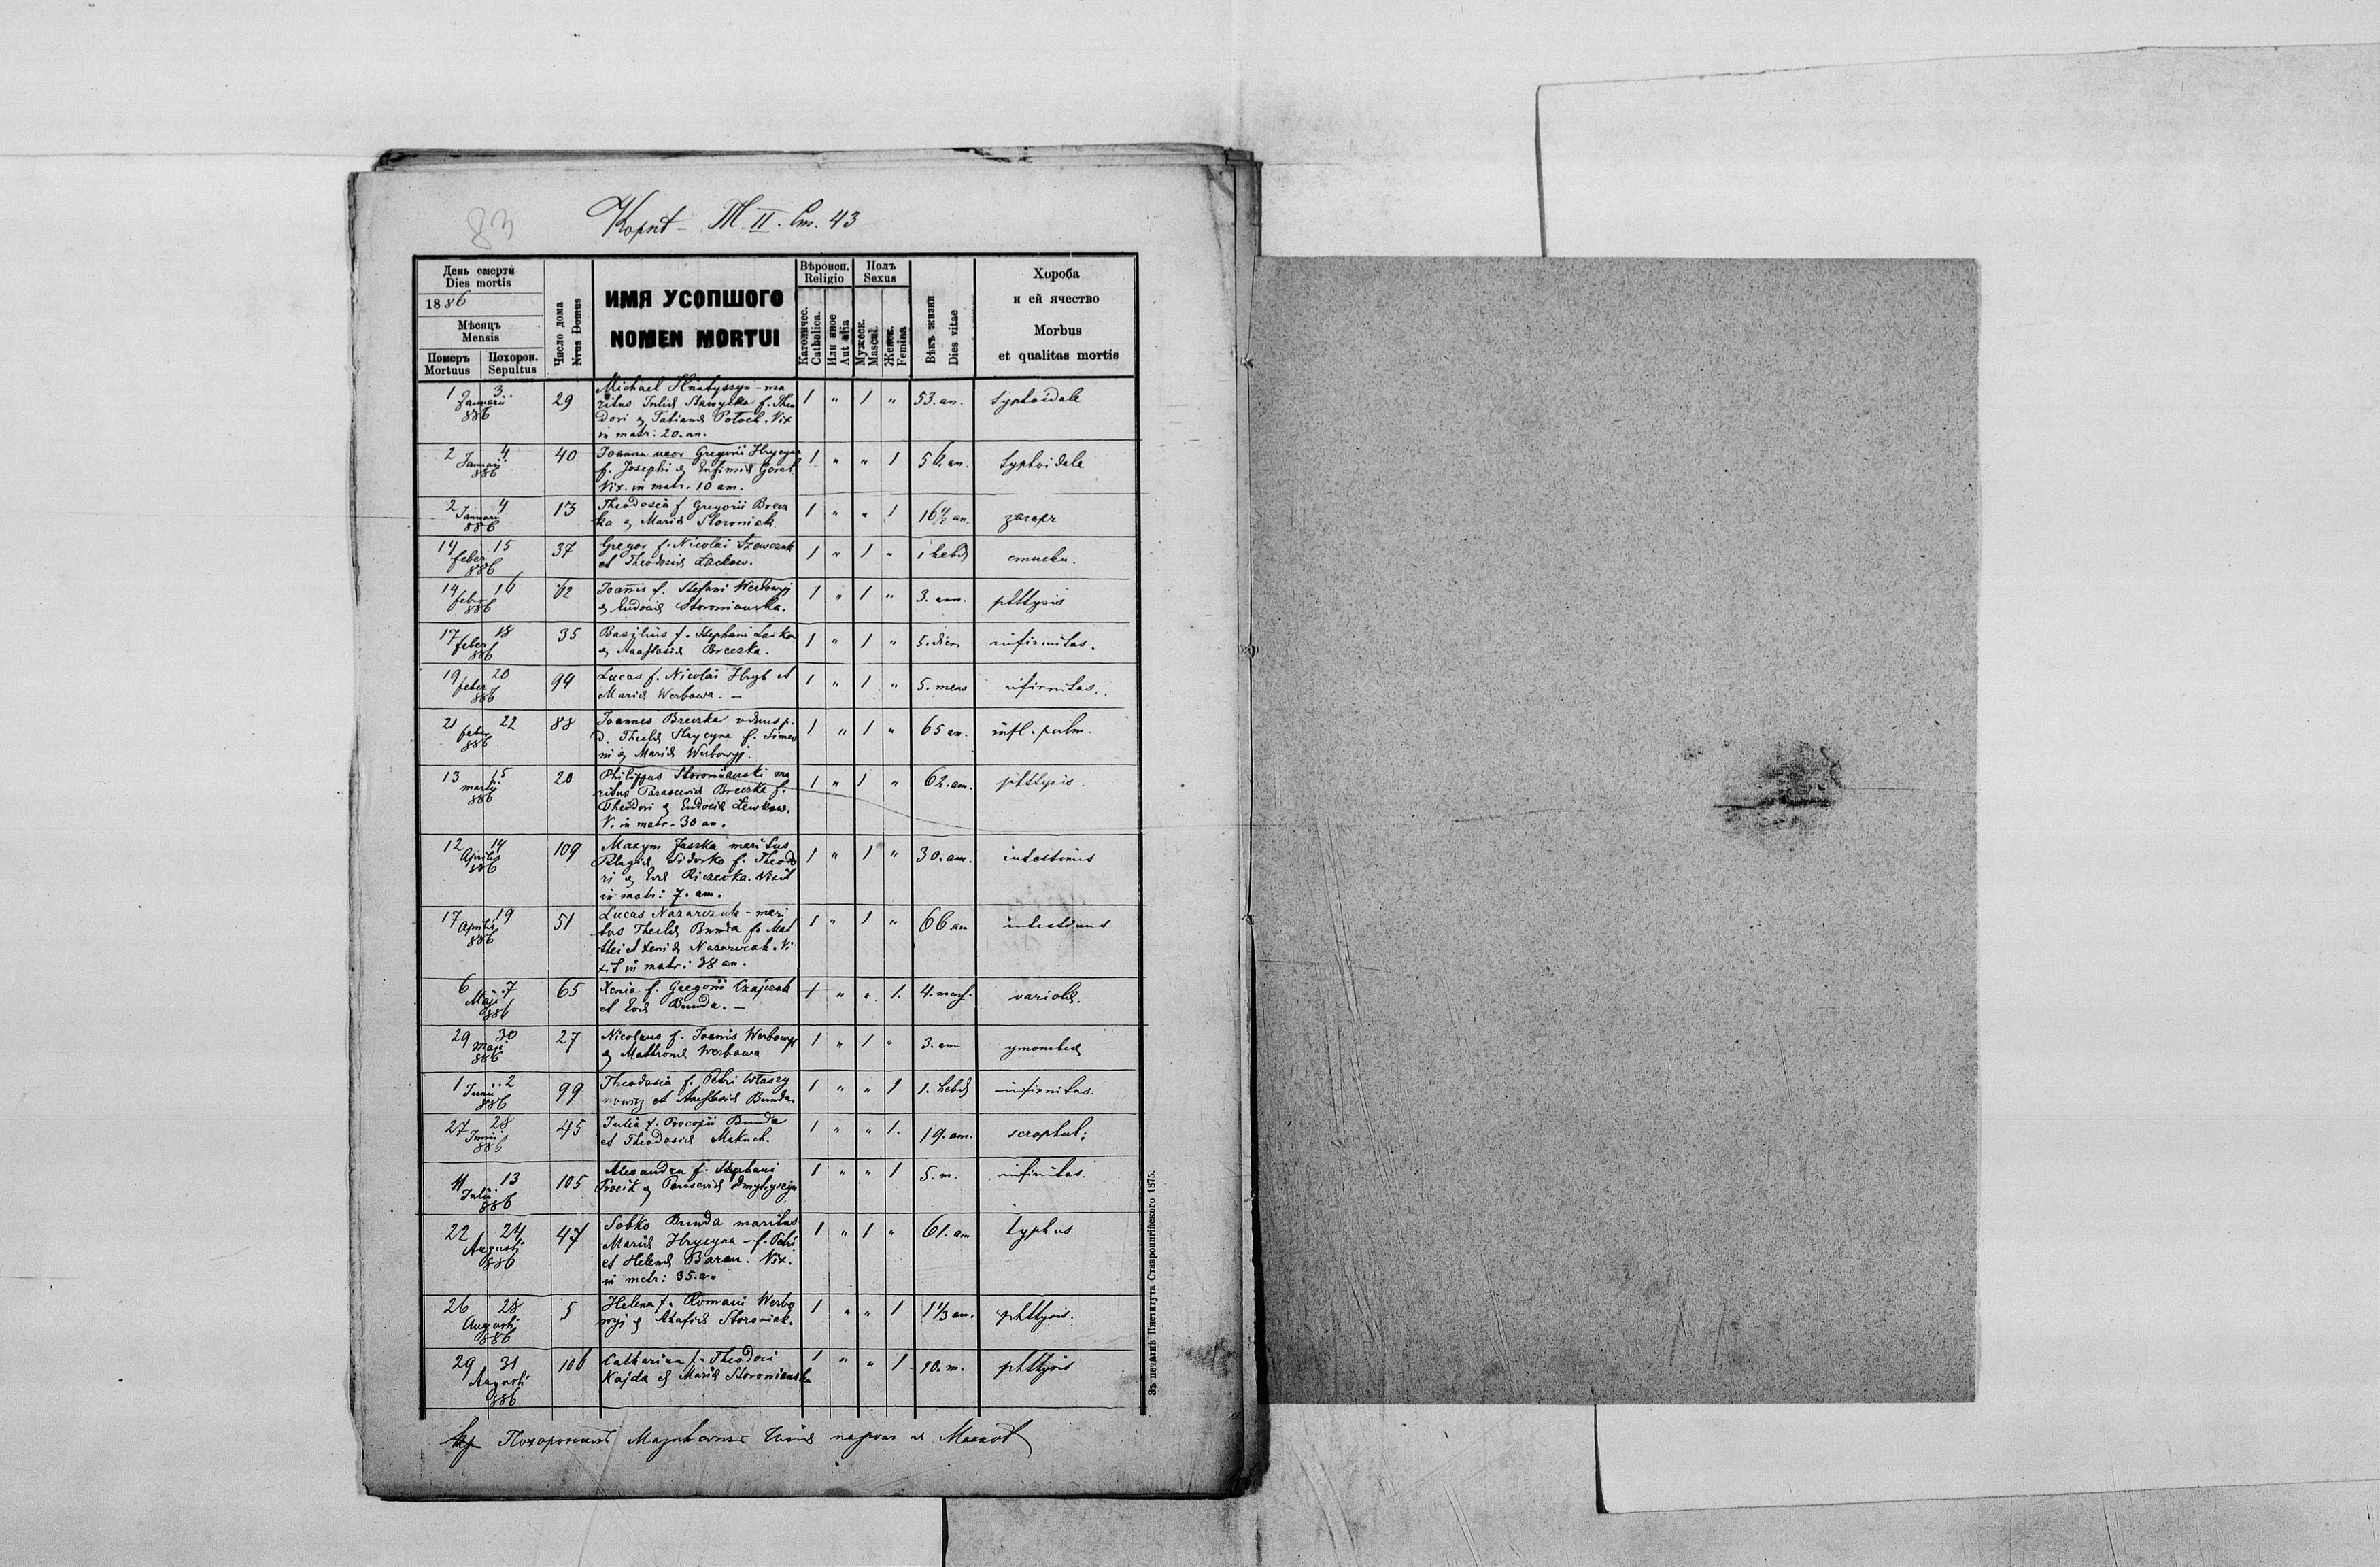 83
Т. II. Ст. 43
День смерти
Dies mortis
1886
Мѣсяцъ
Mensis
Померъ Mortuus
Похорон. Sepultus
Число дома
Nrus Domus
ИМЯ УСОПШОГО
NOMEN MORTUI
Вѣроисп.
Religio
Католичес.
Catholica.
Или иное
Aut alia
Полъ
Sexus
Мужеск.
Mascul.
Женск.
Femina
Вѣкъ жизни
Dies vitae
Хороба
и ей ячество
Morbus
et qualitas mortis
1 3 Januarii 886 29 Michael Hnatyszyn - ma
ritus Juliæ f. Theo
dori & Tatianæ Potoch. Vix
in matr: 20. an.
1 " 1 " 53. an. typhoidale
2 4 Januarii 886 40 Joanna uxor Gregorii Hrycyna
f. Josephi & Eufimiæ Goral
Vix. in matr. 10 an.
1 " " 1 56. an. typhoidale
2 4 Januarii 886 13 Theodosia f Gregorii Brecz
ka & Mariæ Storoniak
1 " " 1 16 1/2 an.
14 15 feber 886 37 Gregor f. Nicolai Szewczuk
et Theodosiæ Lackow.
1 " 1 " 1 hebd
14 16 febr 886 Joannis f. Stefani Werbowyj
& Eudociæ Storonianska.
1 " 1 " 3. ann. phttysis
17 18 feber 886 35 Basilius f. Stephani Lasko
& Anastasiæ Breczka.
1 " 1 " 5. dies infirmitas.
19 20 feber 886 94 Lucas f. Nicolai Hryb et
Mariæ Werbowa. -
1 " 1 " 5. mens ifirmitas.
21 22 febr 886 88 Joannes Breczka viduus p.
d. Theclæ Hrycyna f. Simeo
ni & Mariæ Werbowyj.
1 " 1 " 65 an. infl. pulm.
13 15 martij 886 20 Philippus Storonianski ma
ritus Parasceviæ Breczka f.
Theodori & Eudociæ Lewkow.
V. in matr. 30 an.
1 " 1 " 62. an. phttysis.
12 14 Aprilis 886 109 Maxym Jaszka maritus
Pelagiæ Sidorko f. Theodo
ri & Evæ Riczenka. Vixit
in matr: 7. an.
1 " 1 " 30. an. intestinus
17 19 Aprilis 886 51 Lucas Nazarczuk - mari
tus Theclæ Bunda f. Mat
thei et Xeniæ Nazarczuk. Vi
xit in matr: 38 an.
1 " 1 " 66 an intestinus
6 7 Maji 886 65 Xenia f. Gregorii Czajczuk
et Evæ Bunda. -
1 " " 1. 4. mens. variolæ.
29 30 Maji 886 27 Nicolaus f. Joannis Werbowyj
& Mattronæ Werbowa
1 " 1 " 3. ann
1 2 Junii 886 99 Theodosia f. Petri Wlaszy
nowicz et Anastasiæ Bunda.
1 " " 1 1. hebd infirmitas.
27 28 Junii 886 45 Julia f. Procopii Bunda
et Theodosiæ Makuch.
1 " " 1. 19. am. scrophul:
11 13 Julii 886 105 Alexandra f. Stephani
Procik & Parasceviæ Dmytryszyn
1 " " 1 5. m. infimitas.
22 24 Augusti 886 47 Sobko Bunda maritus
Mariæ Hrycyna - f. Petri
et Helenæ Baran. Vix.
in metr: 35. a.
1 " 1 " 61. am typhus
26 28 Augusti 886 5 Helena f. Romani Werbo
wyj & Ahafiæ Storoniak.
1 " " 1 1 1/3 am. phttysis.
29 31 Augusti 886 106 Catharina f. Theodori
Kajda & Mariæ Storonianska
1 " " 1. 10. m. phttysis
Похоронилъ
Зъ печатнѣ Института Ставропигійского 1875.